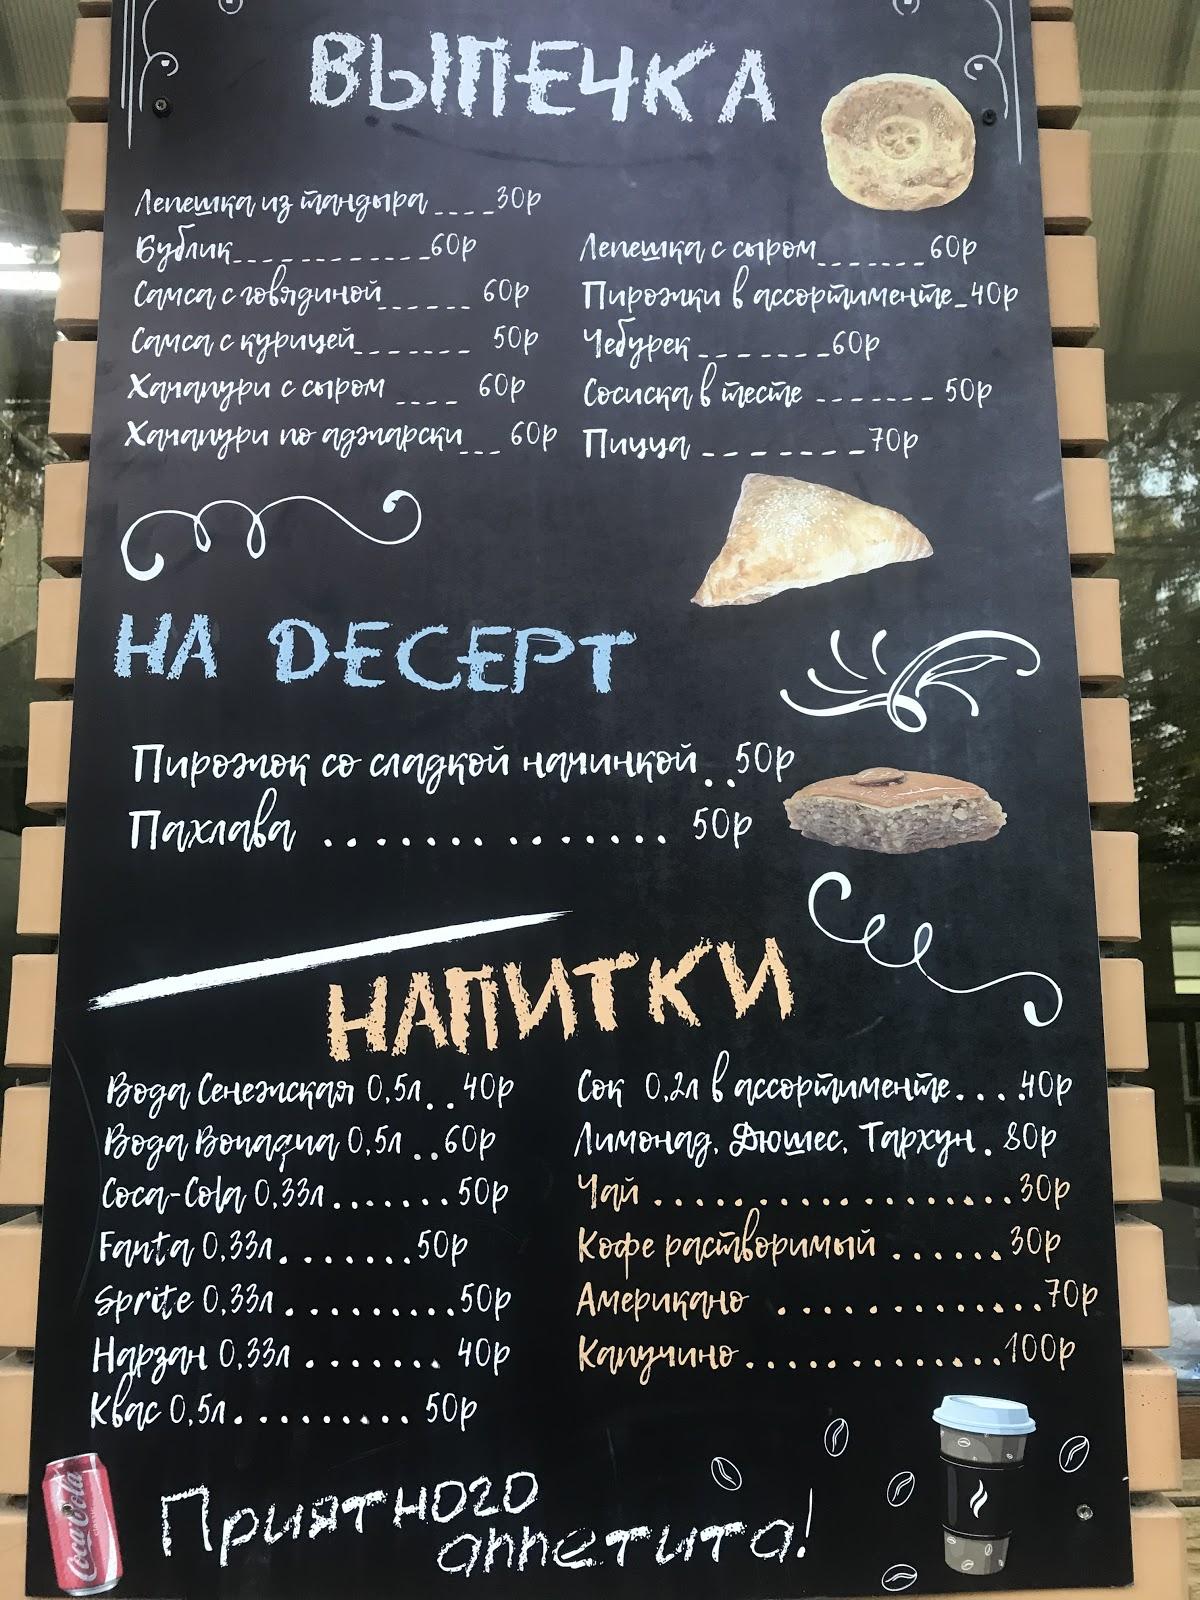 ВЫПЕЧКА
Лепешка из тандыра____30р
Бублик____________60р
Самса с говядиной______ 60р
Самса с курицей_______ 50р
Хачапури с сыром ____ 60р
Хачапури по аджарски___ 60р
Лепешка с сыром_______60р
Пирожки в ассортименте_40р
Чебурек _______60р
Сосиска в тесте _______ 50р
Пицца _______70р
НА DЕСЕРТ
Пирожок со сладкой начинкой..50р
Пахлава .............. 50р
НАПИТКИ
Вода Сенежская 0,5л..40р
Вода Bonaqua 0,5л ..60р
Coca-Cola 0,33л.......50р
Fanta 0,33л.......50р
Sprite 0,33л.........50р
Нарзан 0,33л ....... 40р
Квас 0,5л......... 50р
Сок 0,2л в ассортименте....40р
Лимонад, Дюшес, Тархун. 80р
Чай ...................30р
Кофе растворимый ......30р
Американо ..............70р
Капучино..............100р
Coca-Cola
Приятного
аппетита!